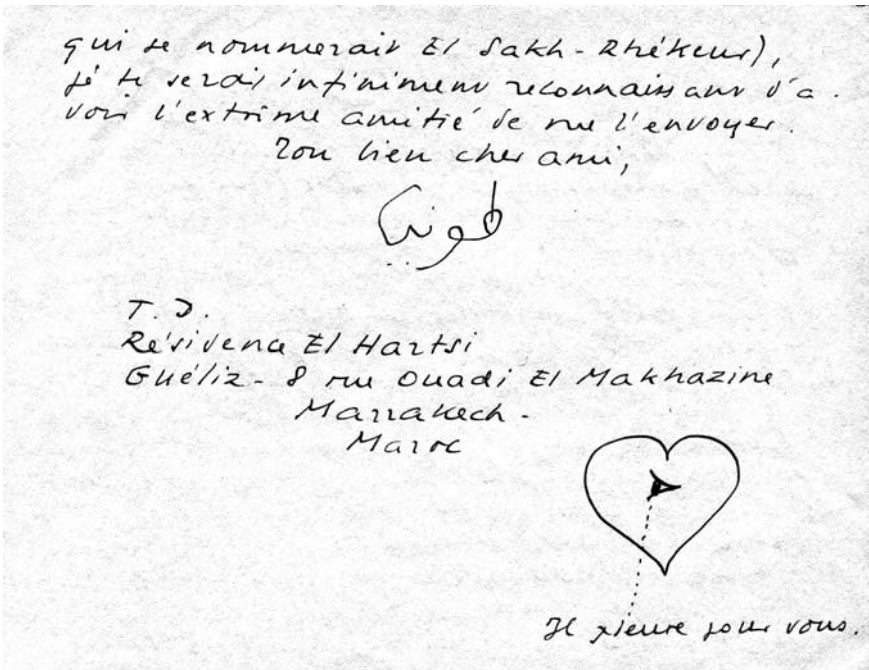 qui se nommerait El Sakh-Rhékeur),
je te serais infiniment reconnaissant d'a-
voir l'extrême amitié de me l'envoyer.
Ton bien cher ami,
طوني
T D.
Résidence El Hartsi
Guéliz - 8 rue Ouadi El Makhazine
Marrakech -
Maroc
Il pleure pour vous.